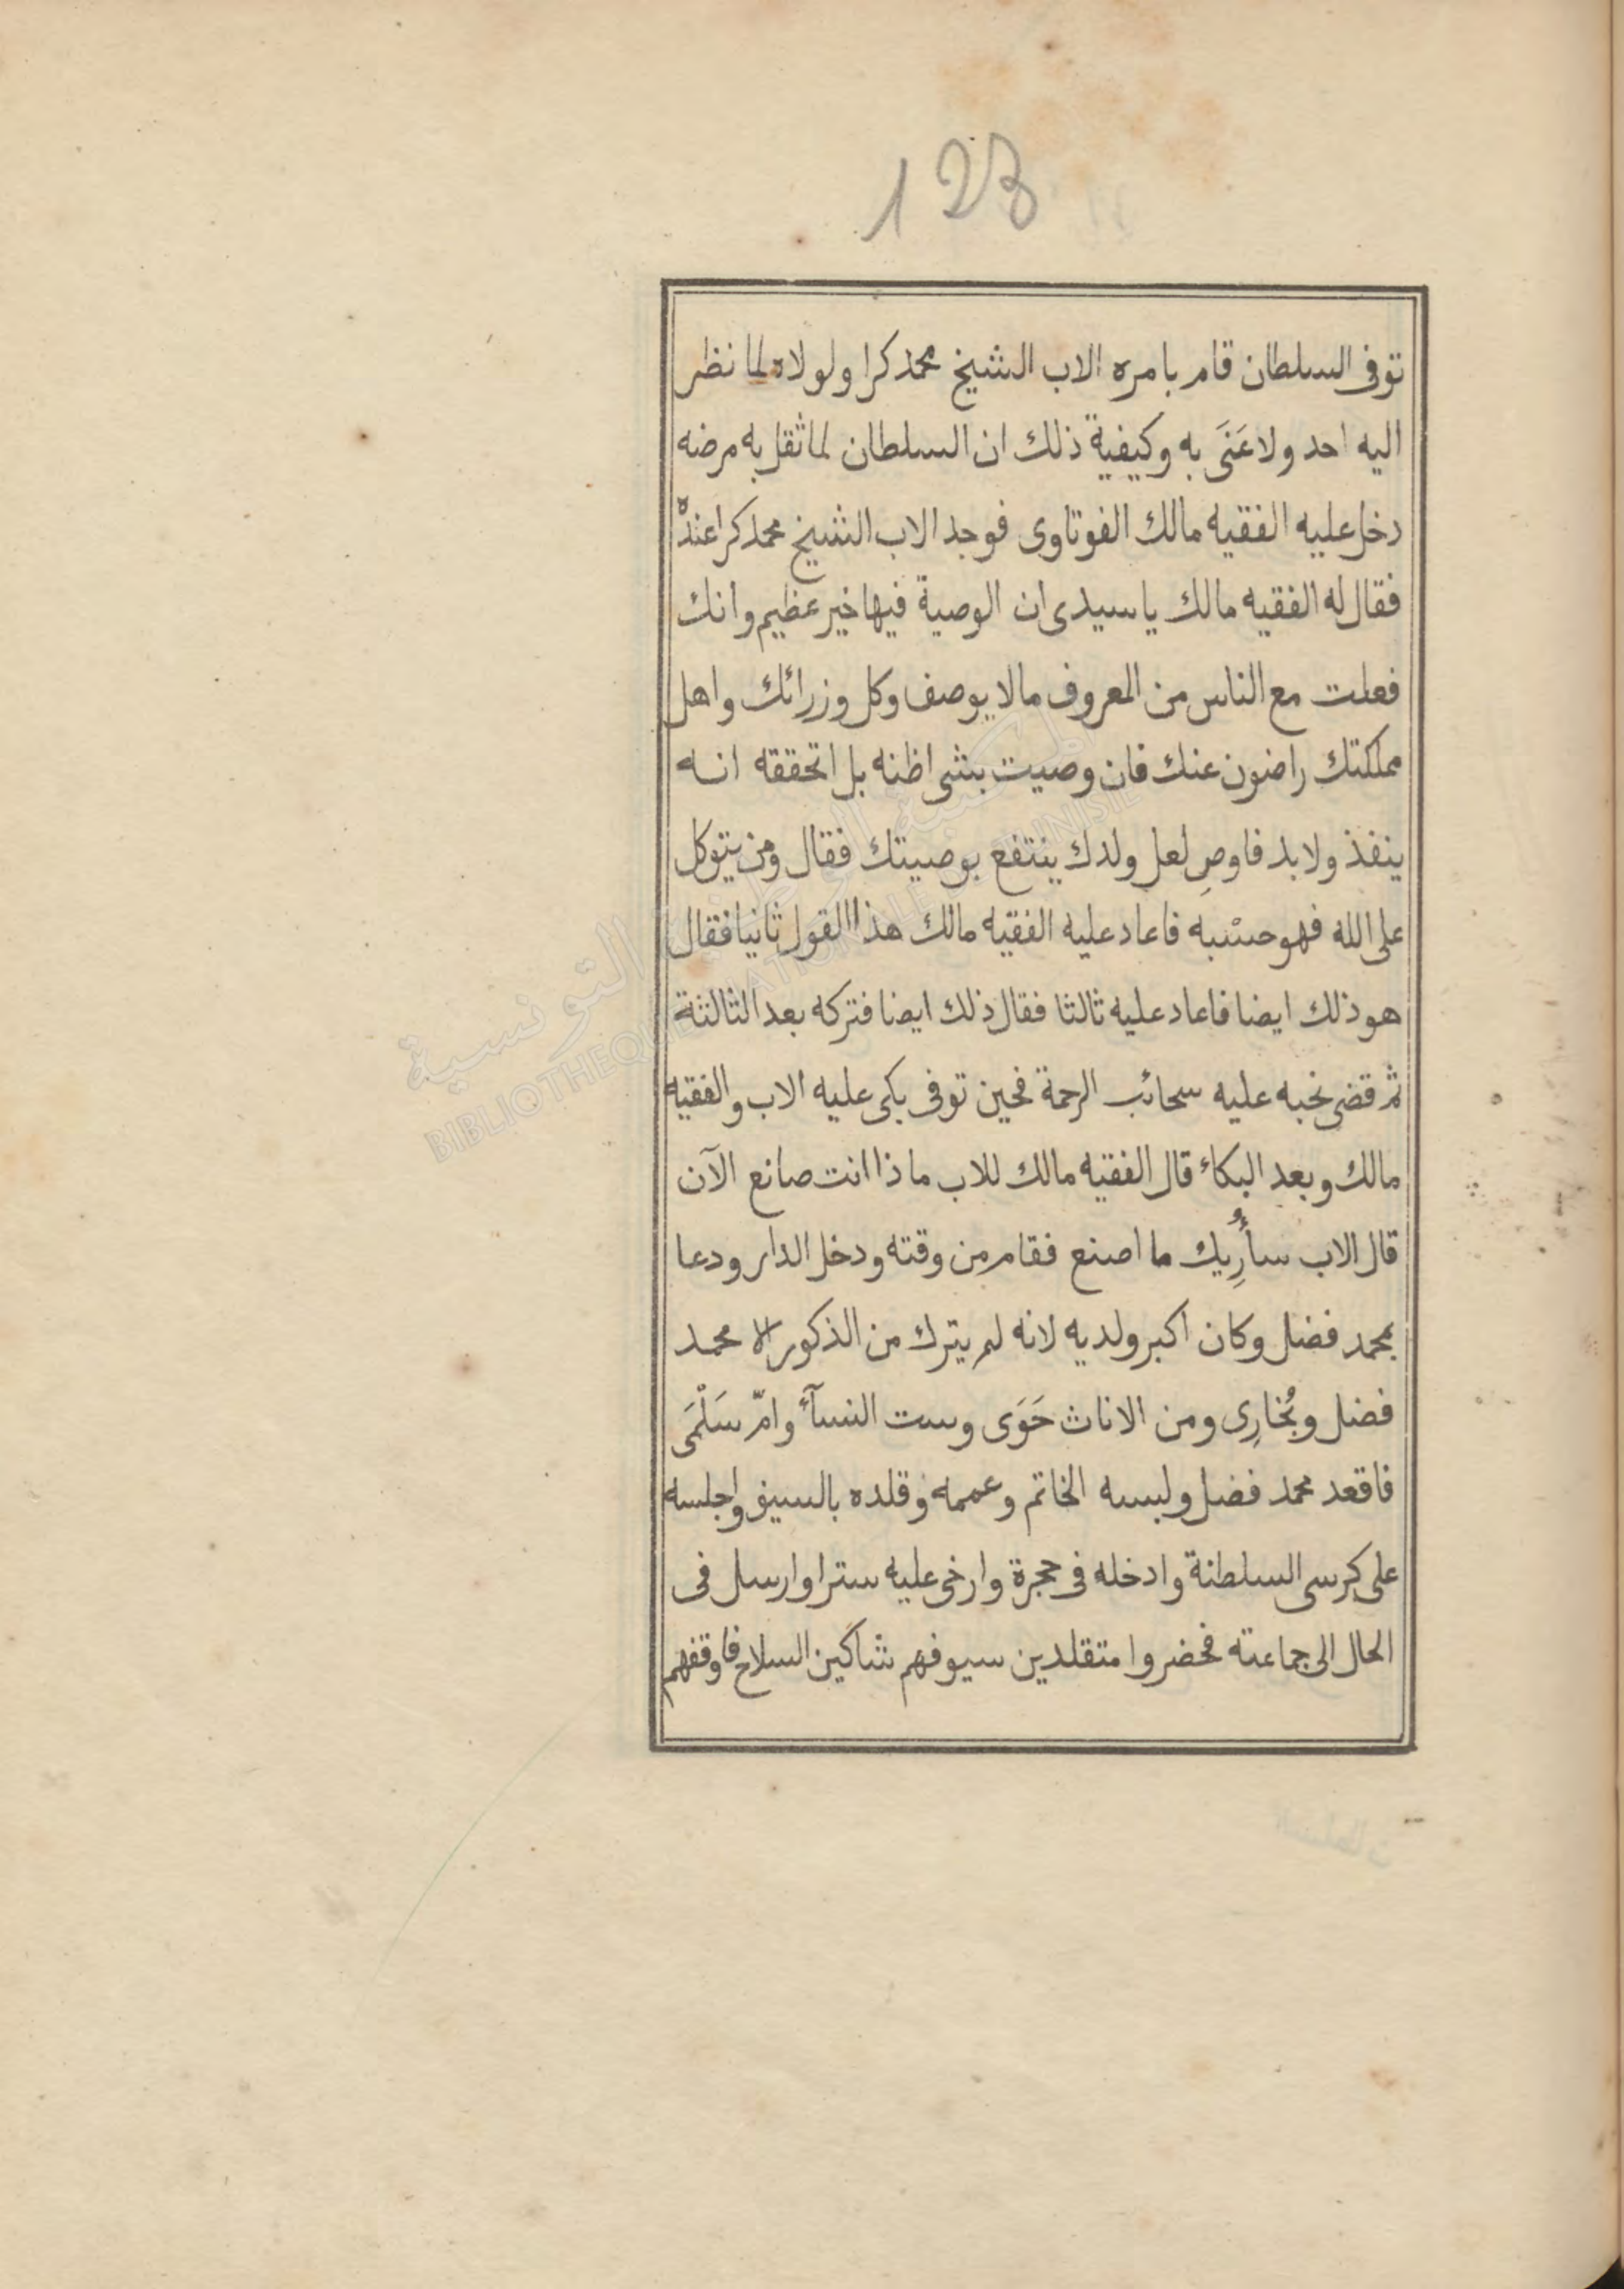 123
توفى السلطان قام بامره الاب الشيخ محمد كرا ولولاه لما نظر
اليه احد ولا عَنَى به وكيفية ذلك ان السلطان لما ثقل به مرضه
دخل عليه الفقيه مالك الفوتاوى فوجد الاب الشيخ محمد كرا عنده
فقال له الفقيه مالك يا سيدى ان الوصية فيها خير عظيم وانك
فعلت مع الناس من المعروف مالا يوصف وكل وزرائك واهل
مملكتك راضون عنك فان وصيت بشى اظنه بل اتحققه انه
ينفذ ولا بد فاوصِ لعل ولدك ينتفع بوصيتك فقال ومن يتوكل
على الله فهو حسْبه فاعاد عليه الفقيه مالك هذا القول ثانيا فقال
هو ذلك ايضا فاعاد عليه ثالثا فقال ذلك ايضا فتركه بعد الثالثة
ثم قضى نحبه عليه سحائب الرحمة فحين توفى بكى عليه الاب والفقيه
مالك وبعد البكاء قال الفقيه مالك للاب ماذا انت صانع الآن
قال الاب سأُرِيك ما اصنع فقام من وقته ودخل الدار ودعا
بمحمد فضل وكان اكبر ولديه لانه لم يترك من الذكور الا محمد
فضل وبُخارِى ومن الاناث حَوَى وست النسآء وامّ سَلْمَى
فاقعد محمد فضل ولبسه الخاتم وعممه وقلده بالسيف واجلسه
على كرسى السلطنة وادخله فى حجرة وارخى عليه سترا وارسل فى
الحال الى جماعته فحضروا متقلدين سيوفهم شاكين السلاح فاوقفهم
المكتبة الوطنية التونسية
BIBLIOTHEQUE NATIONALE TUNISIE